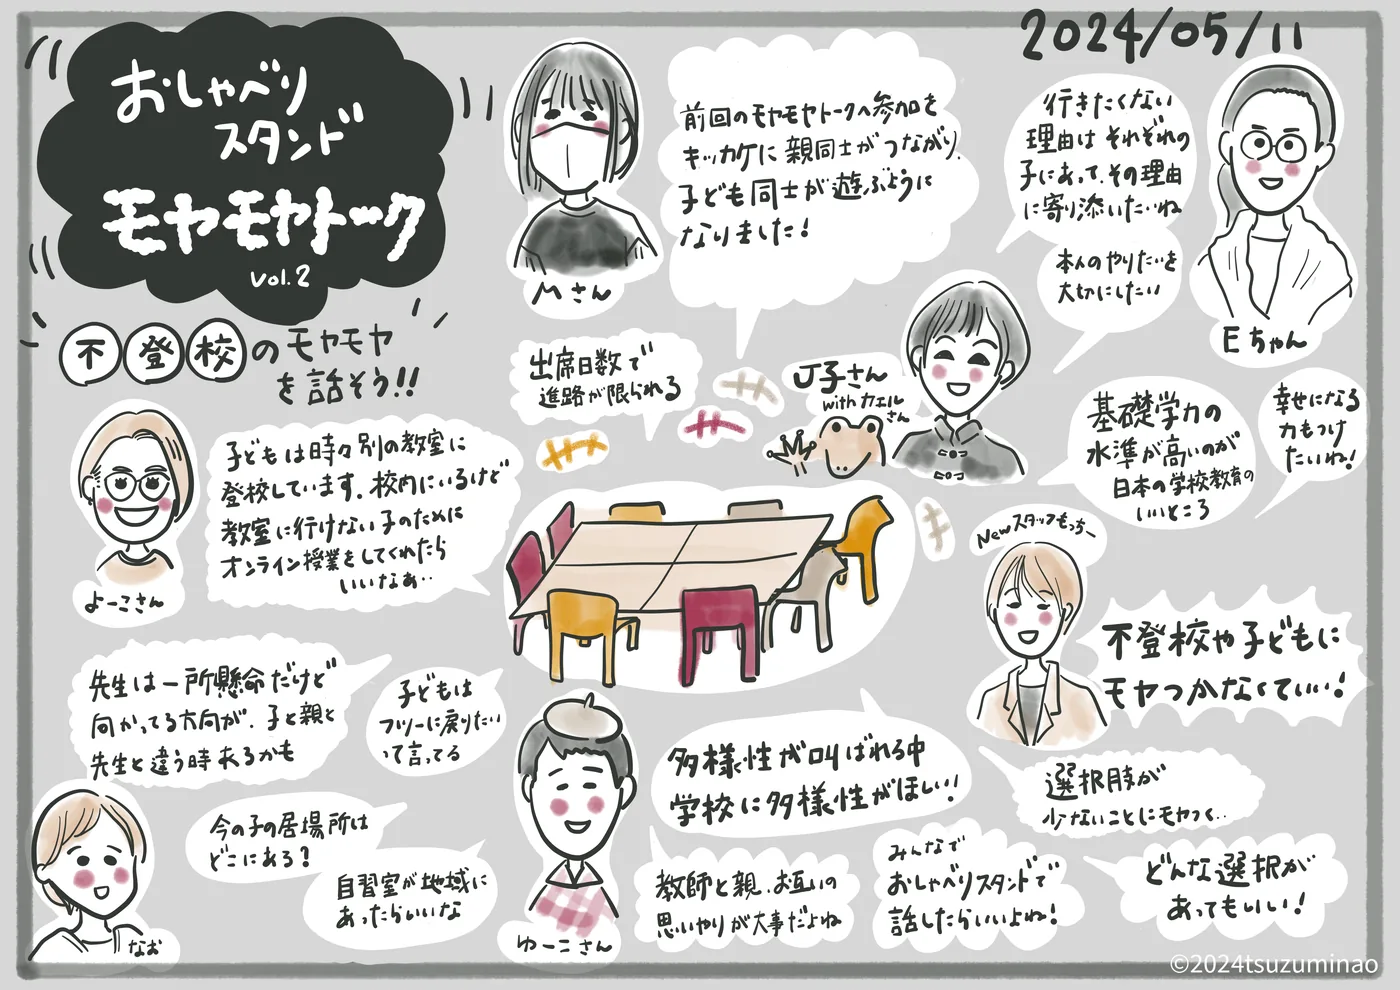 2024/05/11
おしゃべり
スタンド
モヤモヤトーク
vol.2
不登校のモヤモヤ
を話そう!!
Mさん
前回のモヤモヤトークへ参加を
キッカケに親同士がつながり、
子ども同士が遊ぶように
なりました!
行きたくない
理由はそれぞれの
子にあって、その理由
に寄り添いたいね
本人のやりたいを
大切にしたい
Eちゃん
出席日数で
進路が限られる
J子さん
with カエル
さん
基礎学力の
水準が高いのが
日本の学校教育の
いいところ
幸せになる
力もつけ
たいね!
よーこさん
子どもは時々別の教室に
登校しています。校内にいるけど
教室に行けない子のために
オンライン授業をしてくれたら
いいなぁ..
Newスタッフもっちー
不登校や子どもに
モヤつかなくていい!
先生は一所懸命だけど
向かってる方向が、子と親と
先生と違う時あるかも
子どもは
フツーに戻りたい
って言ってる
今の子の居場所は
どこにある?
自習室が地域に
あったらいいな
なお
ゆーこさん
多様性が叫ばれる中
学校に多様性がほしい!
教師と親、お互いの
思いやりが大事だよね
みんなで
おしゃべりスタンドで
話したらいいよね!
選択肢が
少ないことにモヤつく..
どんな選択が
あってもいい!
©2024tsuzuminao